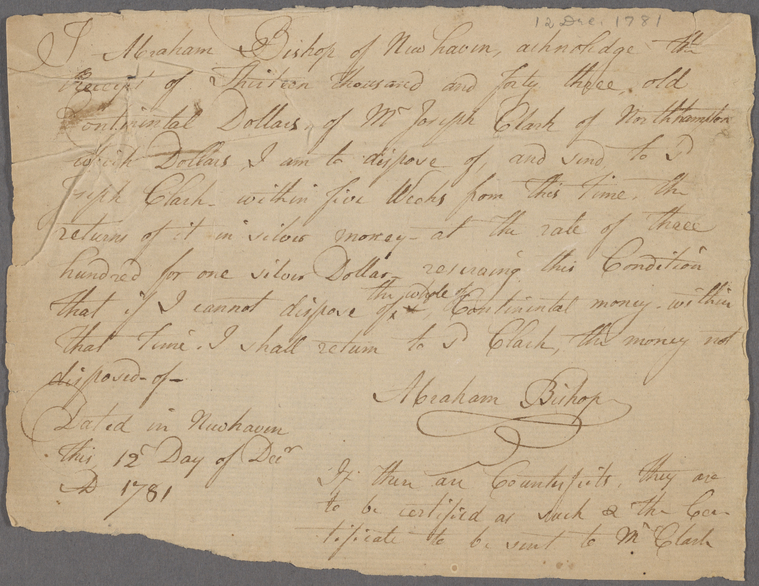 12 Dec. 1781
I Abraham Bishop of Newhaven, acknoledge the
Receipt of Thirteen thousand and forty three, old
Continental Dollars, of Mr Joseph Clark of Northhampton
which Dollars I am to dispose of, and send to Sd
Joseph Clark - within five Weeks from this time, the
returns of it in silver money - at the rate of three
hundred for one silver Dollar - reserving this Condition
that if I cannot dispose of the whole of Continental money - within
that time - I shall return to Sd Clark, the money not
disposed - of -
Abraham Bishop
Dated in Newhaven
this 12 Day of Decr
AD 1781
If there are Counterfeits, they are
to be certified as such & the Cer-
tificate to be sent to Mr Clark